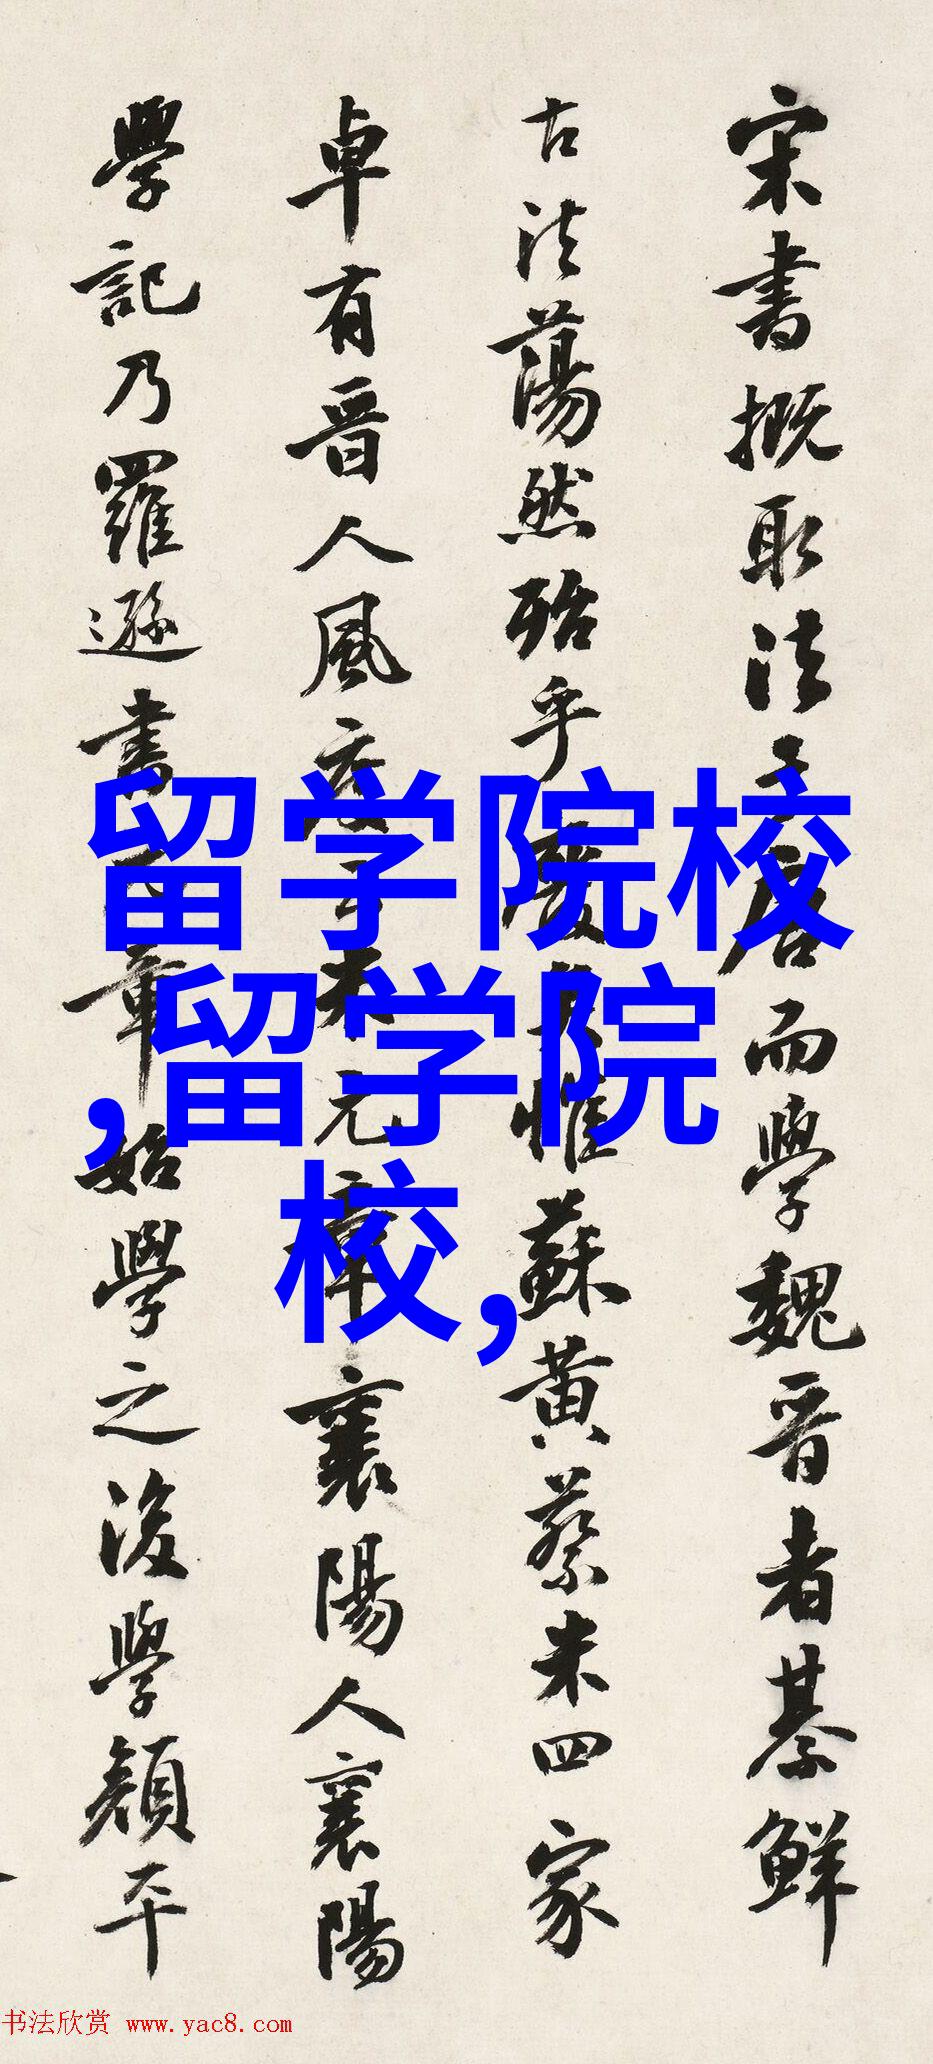 宋書概取法于唐而學魏晉者綦鮮
古法蕩然殆乎惟蘇黄蔡米四家
卓有晋人風度米元章襄陽人襄陽
學記乃羅遜書元章始學之後學顔平
留学院校
,留学院
校,
书法欣赏 www.yac8.com